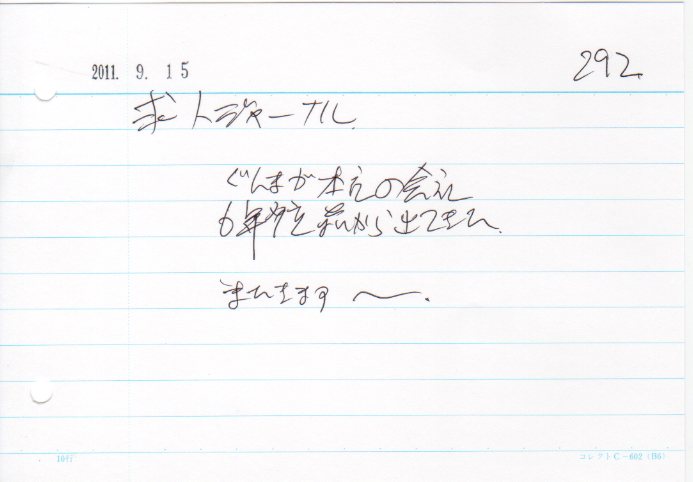 2011. 9. 15
292
求人ジャーナル
ぐんまが本社の会社
6年 前から出てきた
またきます 〜.
10行 コレクトC-602(B6)